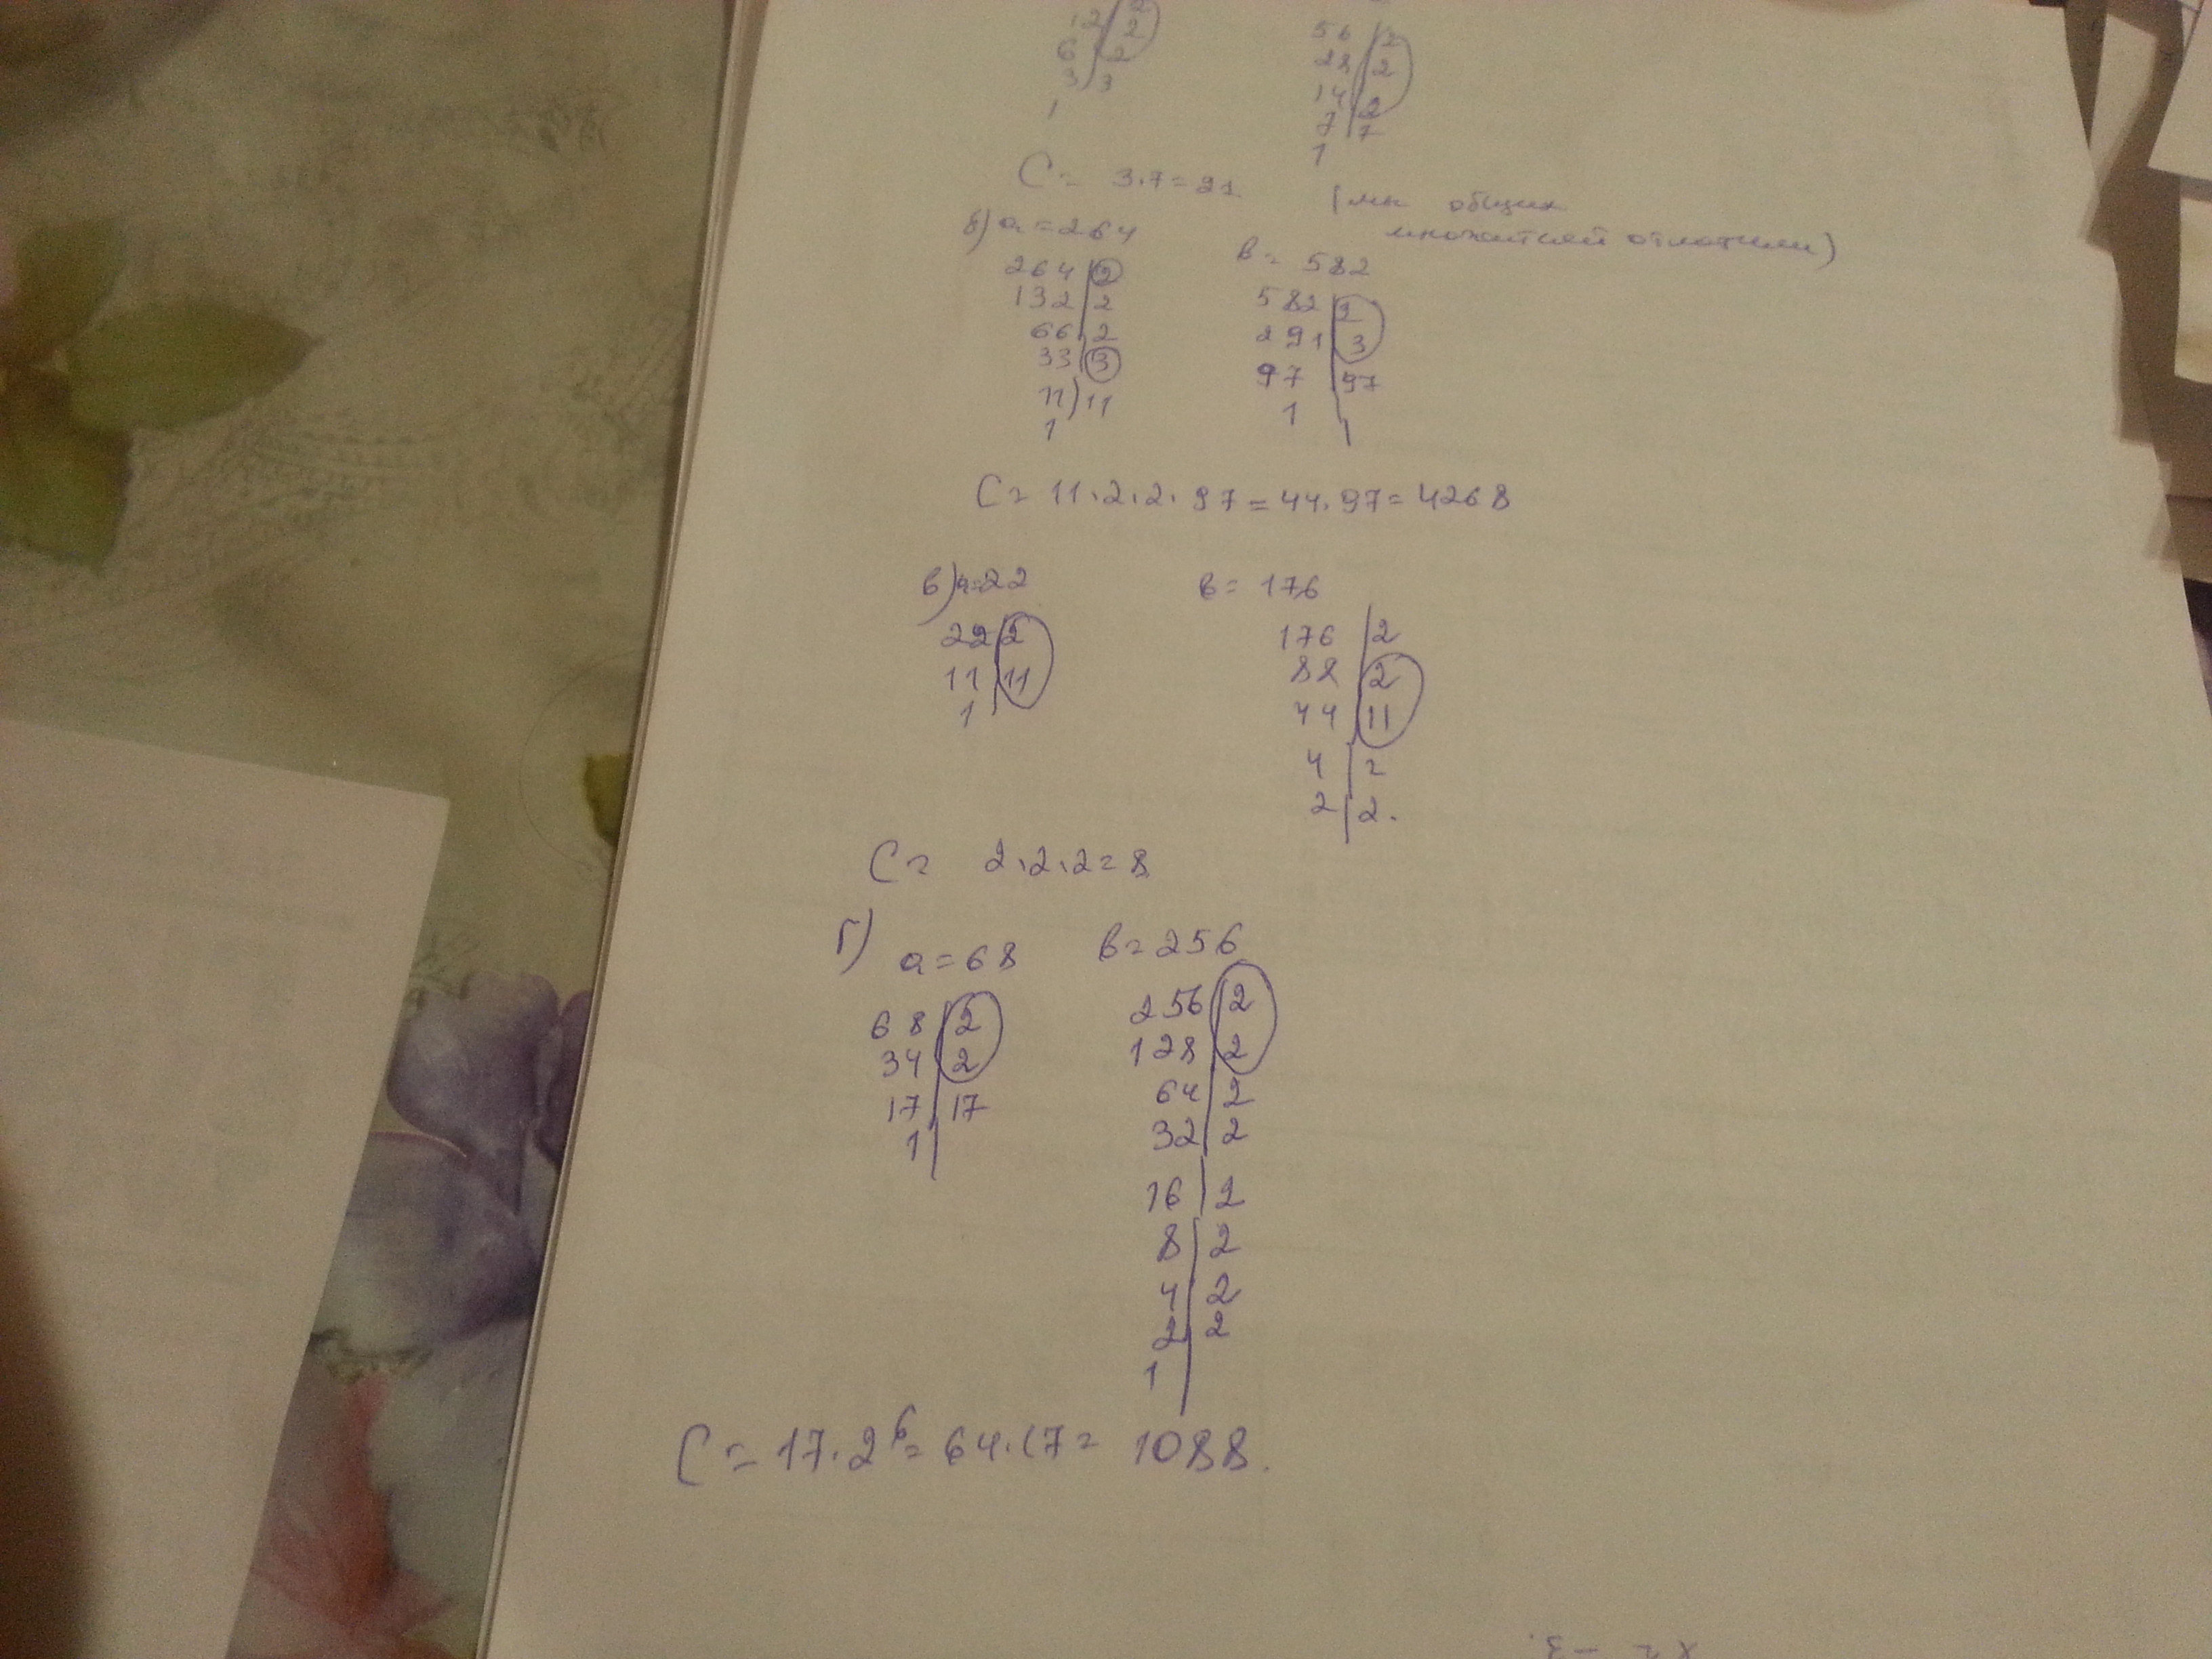 12 | 2
6 | 2
3 | 3
1
56 | 2
28 | 2
14 | 2
7 | 7
1
C = 3.7=21 (мы общих
множителей отложили)
б) a=264
264 | 2
132 | 2
66 | 2
33 | 3
11 | 11
1
в= 582
582 | 2
291 | 3
97 | 97
1
C= 11.2.2.97=44.97=4268
в) a=22
22 | 2
11 | 11
1
в= 176
176 | 2
88 | 2
44 | 11
4 | 2
2 | 2.
C= 2.2.2=8
г) a=68
68 | 2
34 | 2
17 | 17
1
в=256
256 | 2
128 | 2
64 | 2
32 | 2
16 | 2
8 | 2
4 | 2
2 | 2
1
C=17.2⁶=64.17= 1088.